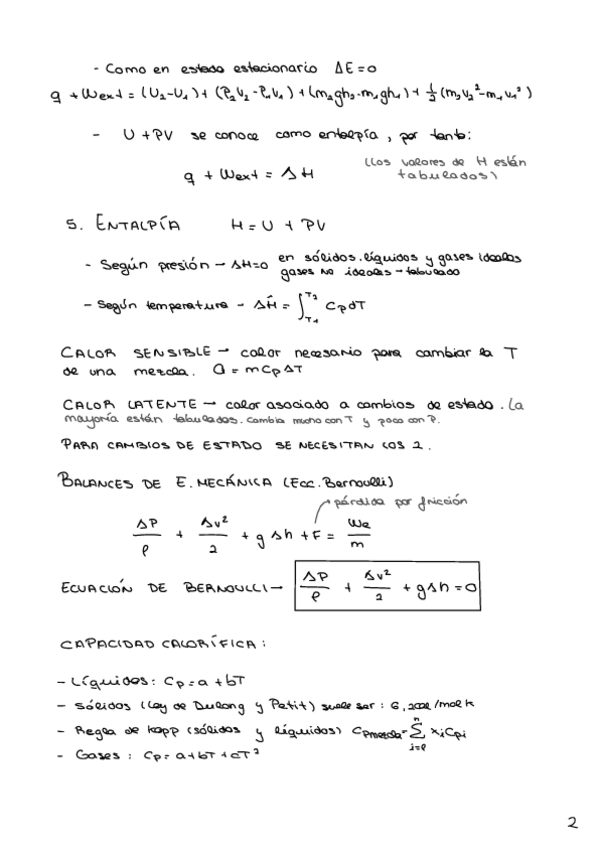 - Como en estado estacionario ΔE=0
q + Wext = (U2-U1) + (P2V2-P1V1) + (m2gh2-m1gh1) + 1/2 (m2v2²-m1v1²)
- U + PV se conoce como entalpía, por tanto:
q + Wext = ΔH (Los valores de H están tabulados)
5. ENTALPÍA H = U + PV
- Según presión → ΔH=0 en sólidos, líquidos y gases ideales
gases NO ideales → tabulado
- Según temperatura - ΔĤ = ∫T1T2 CpdT
CALOR SENSIBLE → calor necesario para cambiar la T
de una mezcla. Q = mCpΔT
CALOR LATENTE → calor asociado a cambios de estado. La
mayoría están tabulados. Cambia mucho con T y poco con P.
PARA CAMBIOS DE ESTADO SE NECESITAN LOS 2.
BALANCES DE E. MECÁNICA (Ecc. Bernoulli)
pérdida por fricción
ΔP/ρ + Δv²/2 + gΔh + F = We/m
ECUACIÓN DE BERNOULLI → ΔP/ρ + Δv²/2 + gΔh = 0
CAPACIDAD CALORÍFICA:
- Líquidos: Cp = a + bT
- Sólidos (Ley de Dulong y Petit) suele ser: 6,2cal/mol K
- Regla de Kopp (sólidos y líquidos) Cpmezcla = Σ xiCpi
- Gases: Cp = a + bT + cT²
2